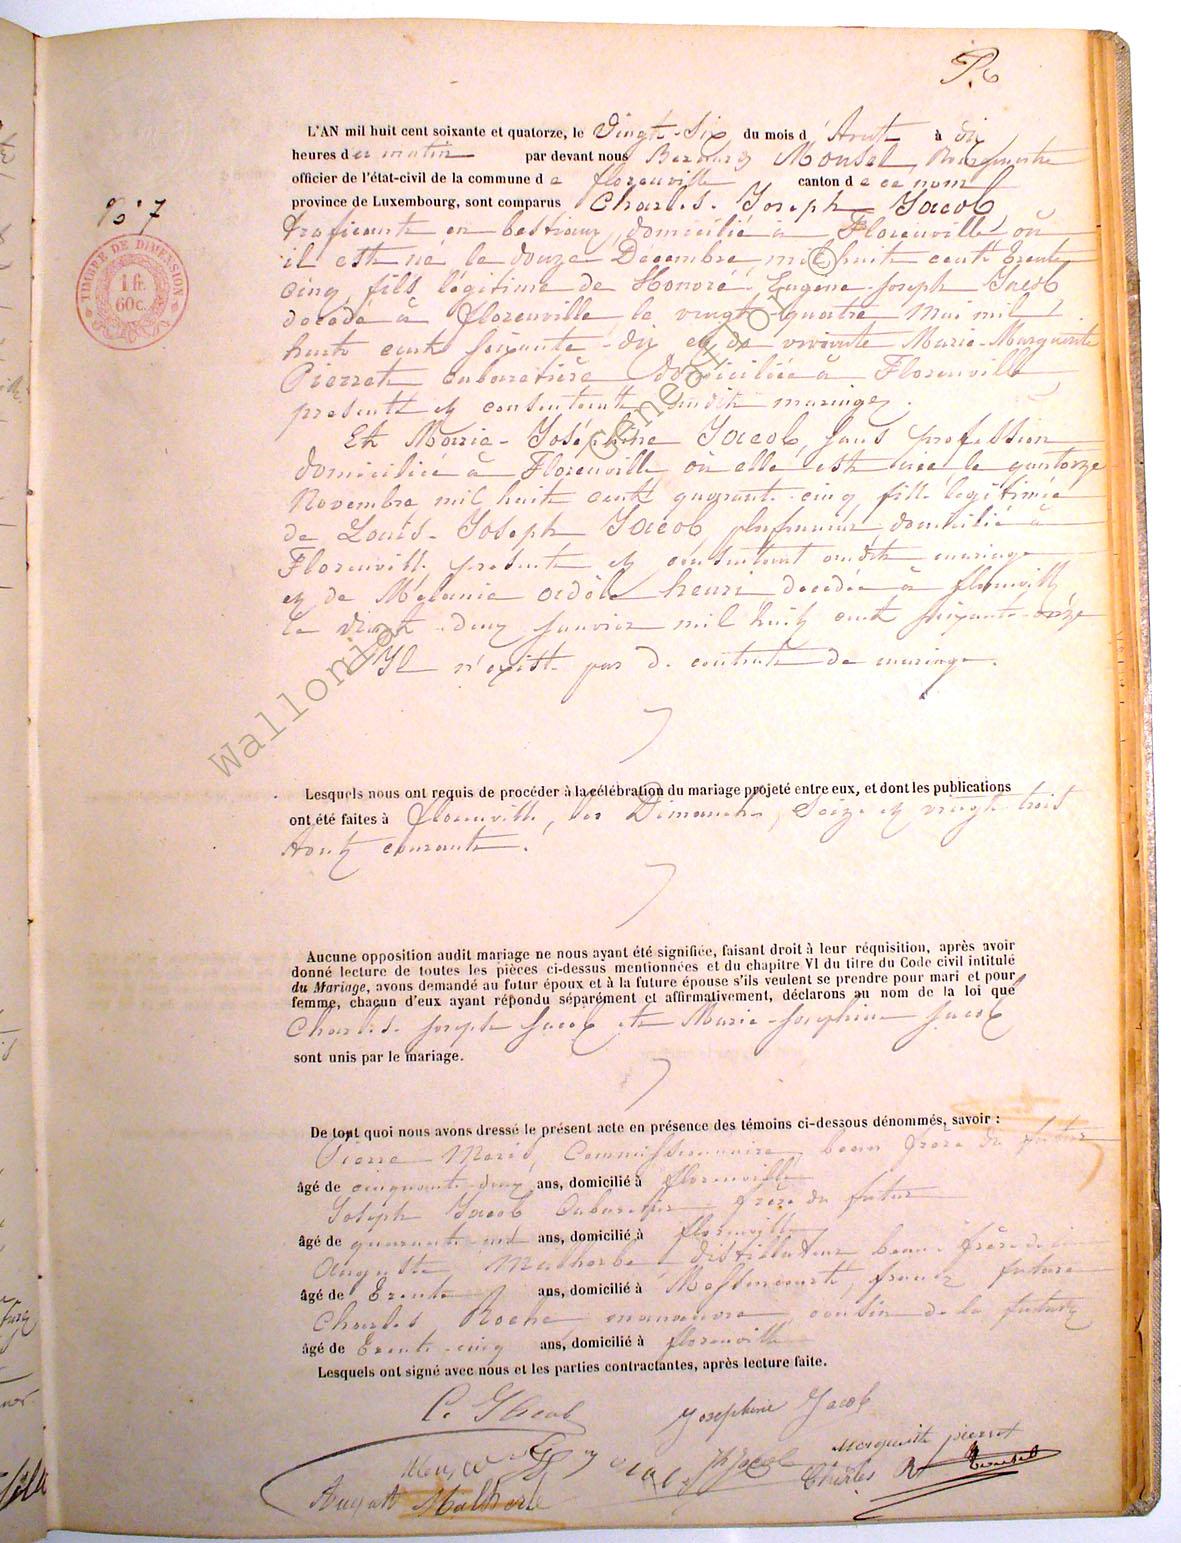 P. 6
L'AN mil huit cent soixante et quatorze, le Vingt-Six du mois d'Aout à dix
heures du matin par devant nous Bernard Monsel, Bourgmestre
officier de l'état-civil de la commune de florenville canton de ce nom
province de Luxembourg, sont comparus Charles-Joseph Jacob,
N° 7
TIMBRE DE DIMENSION
1 fr.
60c.
traficant en bestiaux, domicilié à Florenville où
il est né le douze Décembre mil huit cent trente
cinq, fils légitime de Honoré-Eugène-Joseph Jacob
décédé à florenville le vingt-quatre Mai mil
huit cent soixante-dix et de vivante Marie-Marguerite
Pierret cabaretière domiciliée à Florenville,
présente et consentante audit mariage.
Et Marie-Joséphine Jacob, sans profession
domiciliée à Florenville où elle est née le quatorze
Novembre mil huit cent quarante-cinq fille légitime
de Louis-Joseph Jacob, domicilié à
Florenville présent et consentant audit mariage
et de Mélanie Adèle henri décédée à florenville
le vingt-deux janvier mil huit cent soixante-onze
Il n'existe pas de contrat de mariage.
Lesquels nous ont requis de procéder à la célébration du mariage projeté entre eux, et dont les publications
ont été faites à florenville, les Dimanches, Seize et vingt-trois
Aout courant.
Aucune opposition audit mariage ne nous ayant été signifiée, faisant droit à leur réquisition, après avoir
donné lecture de toutes les pièces ci-dessus mentionnées et du chapitre VI du titre du Code civil intitulé
du Mariage, avons demandé au futur époux et à la future épouse s'ils veulent se prendre pour mari et pour
femme, chacun d'eux ayant répondu séparément et affirmativement, déclarons au nom de la loi que
Charles-Joseph Jacob et Marie-Josephine Jacob
sont unis par le mariage.
De tout quoi nous avons dressé le présent acte en présence des témoins ci-dessous dénommés, savoir :
Pierre Commissionnaire, beau frère du futur
âgé de cinquante-deux ans, domicilié à florenville
Joseph Jacob Cabaretier frère du futur
âgé de quarante ans, domicilié à florenville
Auguste Malherbe distillateur beau-frère de la
âgé de trente ans, domicilié à Messincourt, france future
Charles Roche manoeuvre cousin de la future
âgé de trente-cinq ans, domicilié à florenville
Lesquels ont signé avec nous et les parties contractantes, après lecture faite.
C. Jacob
Josephine Jacob
Marguerite pierret
Jacob
Charles
Auguste Malherbe
Wallonia © Geneanet.org